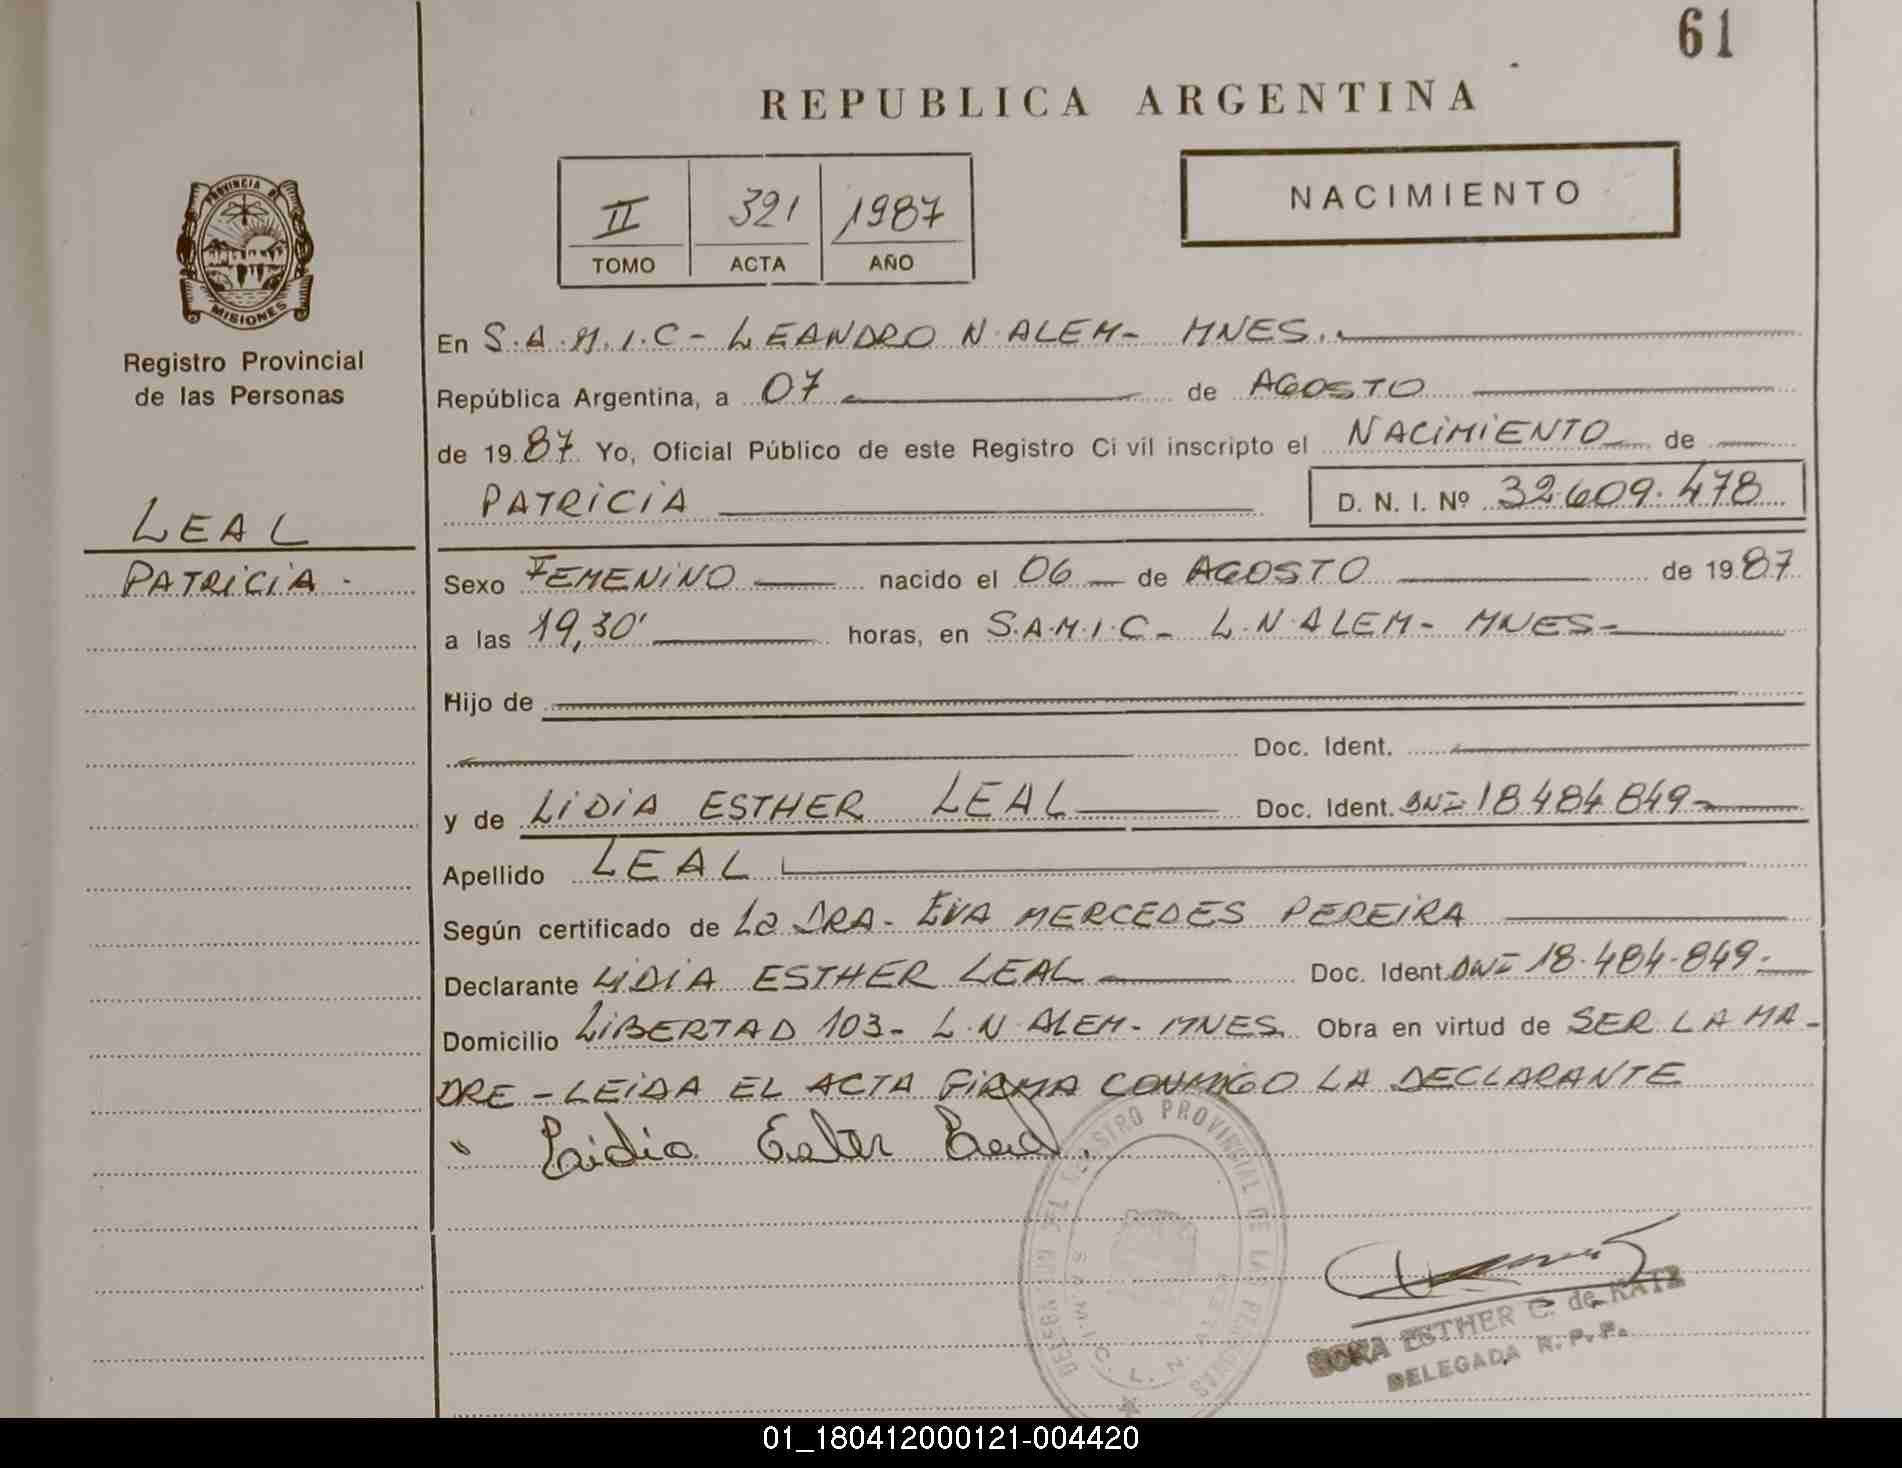 61
REPUBLICA ARGENTINA
II 321 1987
TOMO ACTA AÑO
NACIMIENTO
PROVINCIA DE
MISIONES
Registro Provincial
de las Personas
LEAL
PATRICIA
En S.A.M.I.C - LEANDRO N. ALEM - MNES.
República Argentina, a 07 de AGOSTO
de 1987 Yo, Oficial Público de este Registro Civil inscripto el NACIMIENTO de
PATRICIA D. N. I. Nº 32.609.478
Sexo FEMENINO nacido el 06 de AGOSTO de 1987
a las 19,30' horas, en S.A.M.I.C - L.N.ALEM - MNES-
Hijo de
Doc. Ident.
y de LIDIA ESTHER LEAL Doc. Ident. DNI 18.484.849-
Apellido LEAL
Según certificado de La DRA. EVA MERCEDES PEREIRA
Declarante LIDIA ESTHER LEAL Doc. Ident. DNI 18.484.849.-
Domicilio LIBERTAD 103- L.N.ALEM- MNES. Obra en virtud de SER LA MA-
DRE - LEIDA EL ACTA FIRMA CONMIGO LA DECLARANTE
Lidia Ester Leal.
REGISTRO PROVINCIAL DE LAS PERSONAS
S.A.M.I.C. L.N. ALEM
DORA ESTHER C. de KATZ
DELEGADA R. P. P.
01_180412000121-004420